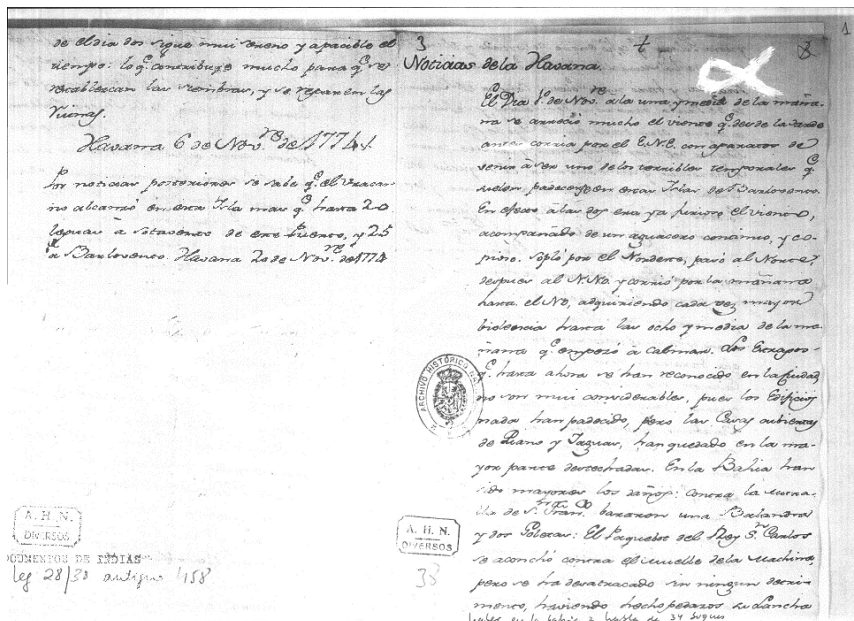 de el dia dos sigue mui sereno y apacible el
tiempo: lo q.e contribuye mucho para q.e se
restablezcan las siembras, y se reparen las
Ruinas.
Havana 6 de Nov.re de 1774.
Por noticias posteriores se sabe q.e el Uracan
no alcanzó en esta Isla mas q.e hasta 20
leguas à Sotavento de este Puerto, y 25
à Barlovento. Havana 20 de Nov.re de 1774
A. H. N.
DIVERSOS
DOCUMENTOS DE INDIAS
leg 28/38 antiguo 158
3
1
8
Noticias de la Havana.
El Dia 1.o de Nov.re a la una y media de la maña-
na se arreció mucho el viento q.e desde la tarde
antes corria por el E.N.E. con aparatos de
venir à ser uno de los terribles temporales q.e
suelen padecerse en estas Islas de Barlovento.
En efecto à las dos era ya furioso el viento,
acompañado de un aguacero continuo, y co-
pioso. Sopló por el Nordeste, pasó al Norte,
despues al N.NO. y corrió por la mañana
hasta el NO, adquiriendo cada vez mayor
violencia hasta las ocho y media de la ma-
ñana q.e empezó à calmar. Los Estragos
q.e hasta ahora se han reconocido en la Ciudad
no son mui considerables, pues los Edificios
nada han padecido, pero las Casas cubiertas
de Guano y Yaguas, han quedado en la ma-
yor parte destechadas. En la Bahia han
sido mayores los daños: contra la mura-
lla de S.n Fran.co bararon una Balandra
y dos Goletas: El Paquebot del Rey S.n Carlos
se aconchó contra el muelle de la Machina,
pero se ha desatracado sin ningun detri-
mento, haviendo hecho pedazos la Lancha
ARCHIVO HISTÓRICO
A. H. N.
DIVERSOS
38